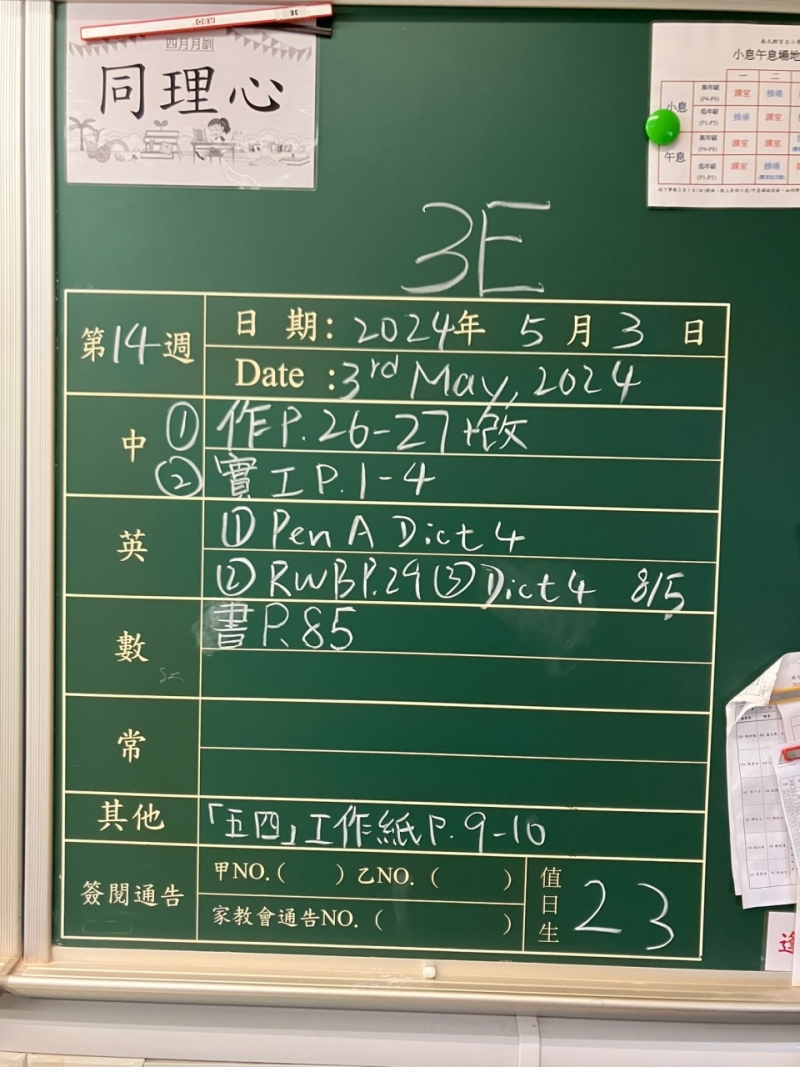 四月月訓
同理心
小息午息場地
一 二
小息 高年級 (P4-P6) 課室 操場
低年級 (P1-P3) 操場 課室
午息 高年級 (P4-P6) 課室 課室
低年級 (P1-P3) 課室 操場
3E
第14週 日期：2024年 5月 3 日
Date : 3rd May, 2024
中 ① 作P.26-27+改
② 實工P.1-4
英 ① Pen A Dict 4
② RWB P.29 ③ Dict 4 8/5
數 書P.85
常
其他 「五四」工作紙P.9-10
簽閱通告 甲NO.( ) 乙NO. ( )
家教會通告NO. ( )
值日生 23